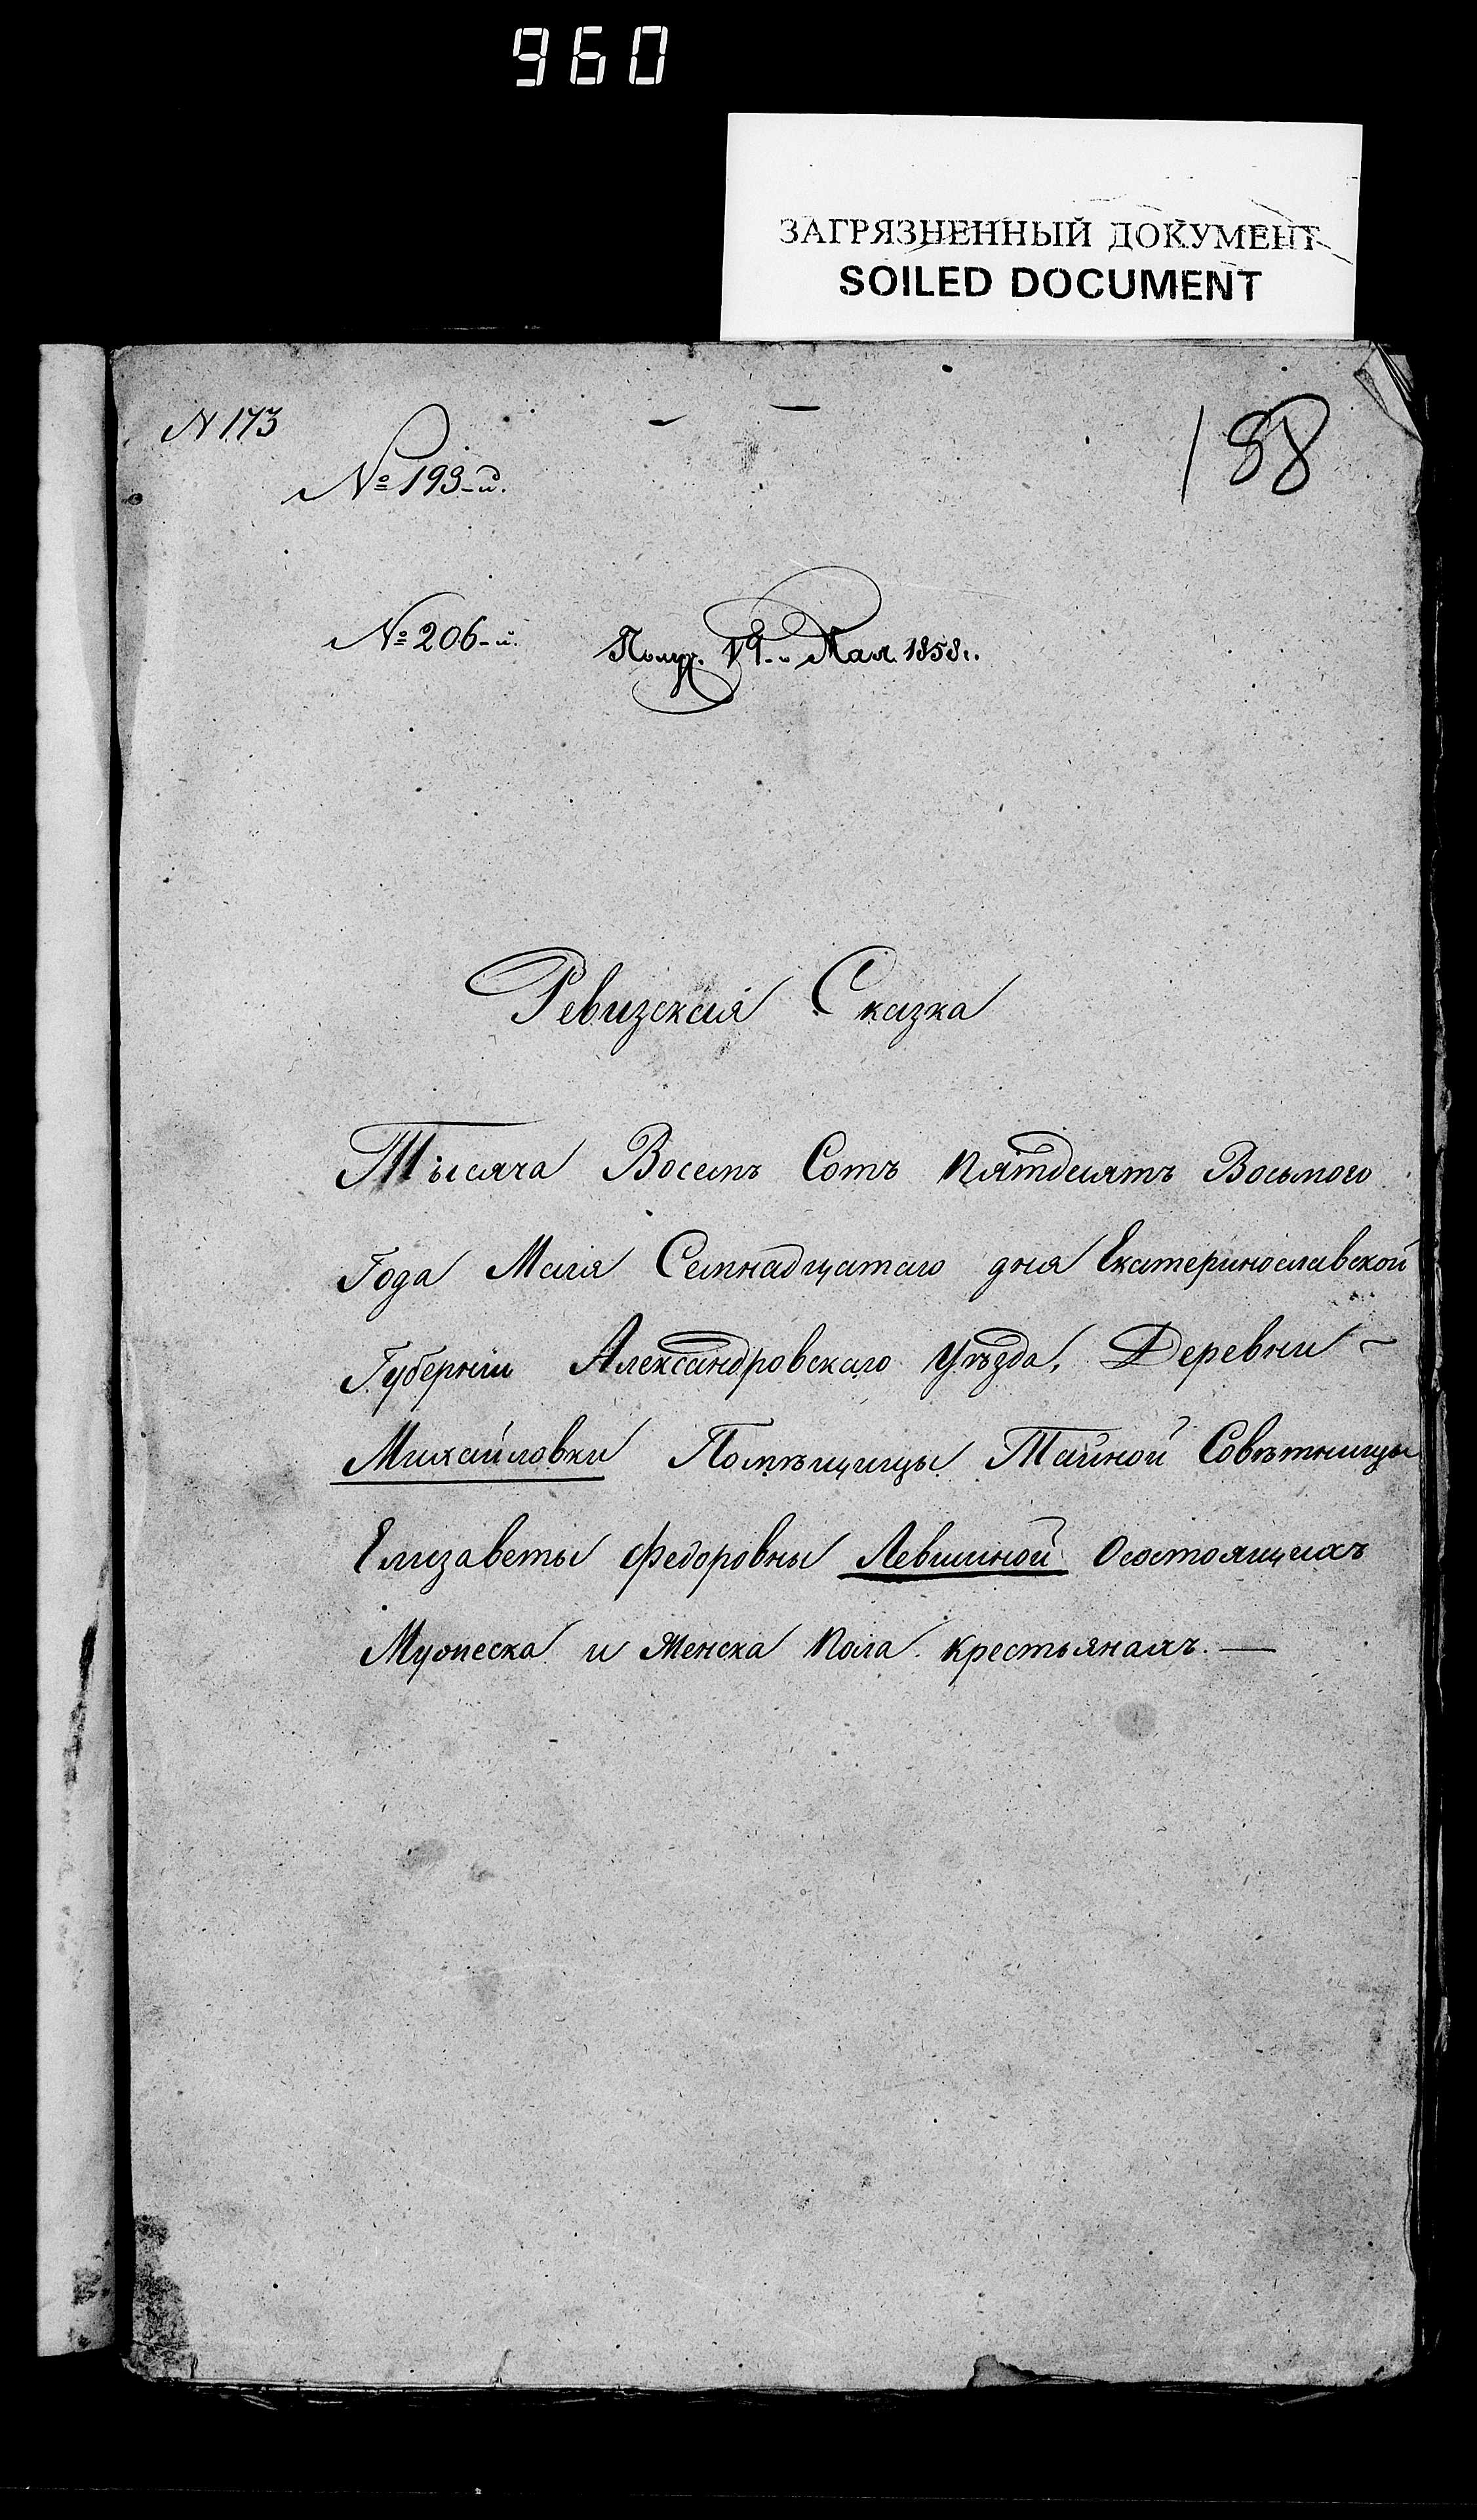 960
ЗАГРЯЗНЕННЫЙ ДОКУМЕНТ
SOILED DOCUMENT
N 173
188
№ 193-й.
№ 206-й. Получ. 19-го Мая 1858 г.
Ревизская Сказка
Тысяча Восемь Сотъ Пятдесятъ Восьмого
Года Мая Семнадцатаго дня Екатеринославской
Губерніи Александровскаго Уѣзда, Деревни ~
Михайловки Помѣщицы Тайной Совѣтницы
Елизаветы Федоровны Левшиной О состоящихъ
Мужеска и Женска Пола крестьянахъ. —